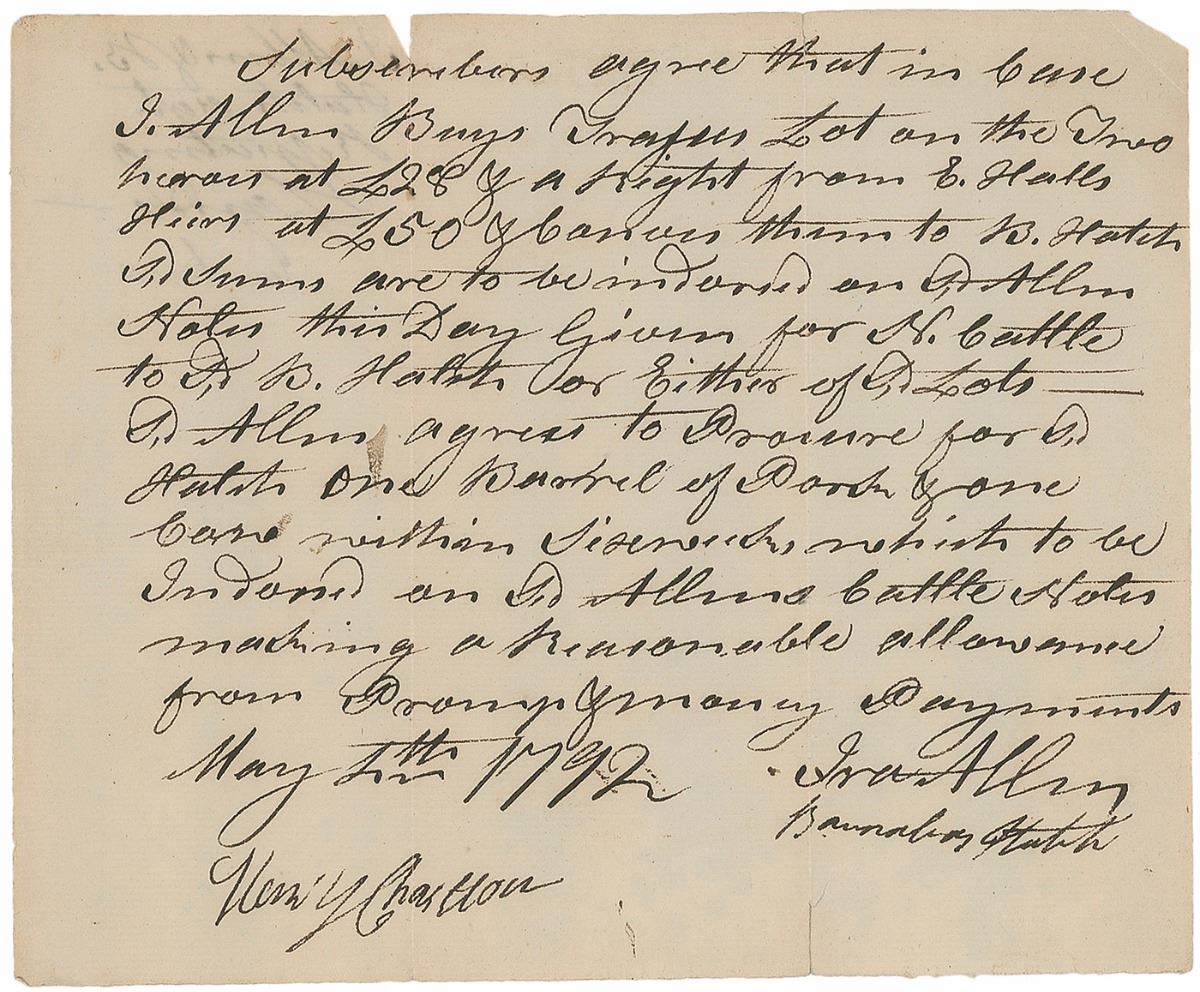 Subscribers agree that in Case
I. Allen Buys Lot on the Two
heroes at £28 & a Right from E. Halls
Heirs at £50 & Convs them to B. Hatch
Sd Sums are to be indorsed on Sd Allen
Notes this Day Given for N. Cattle
to Sd B. Hatch or Either of Sd Lots —
Sd Allen agrees to Procure for Sd
Hatch One Barrel of Pork & one
within Sixweeks which to be
Indorsd on Sd Allens Cattle Notes
making a Reasonable allowance
from Promp & money Payments
May 1792 Ira Allen
Barnabas Hatch
Henry